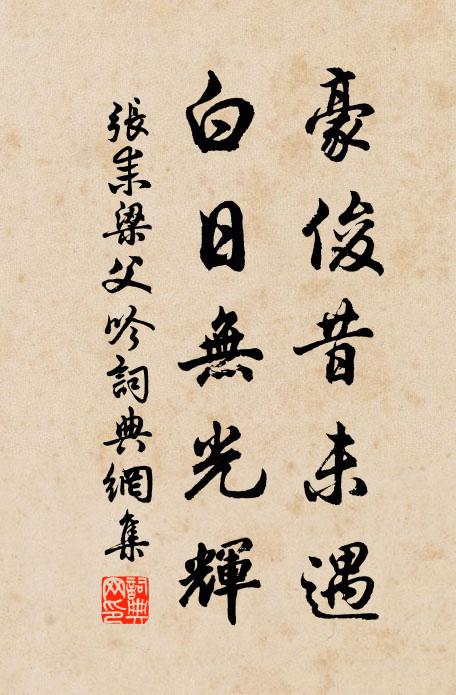 豪俊昔未遇
白日無光輝
張耒梁父吟詞典網集
詞典網印